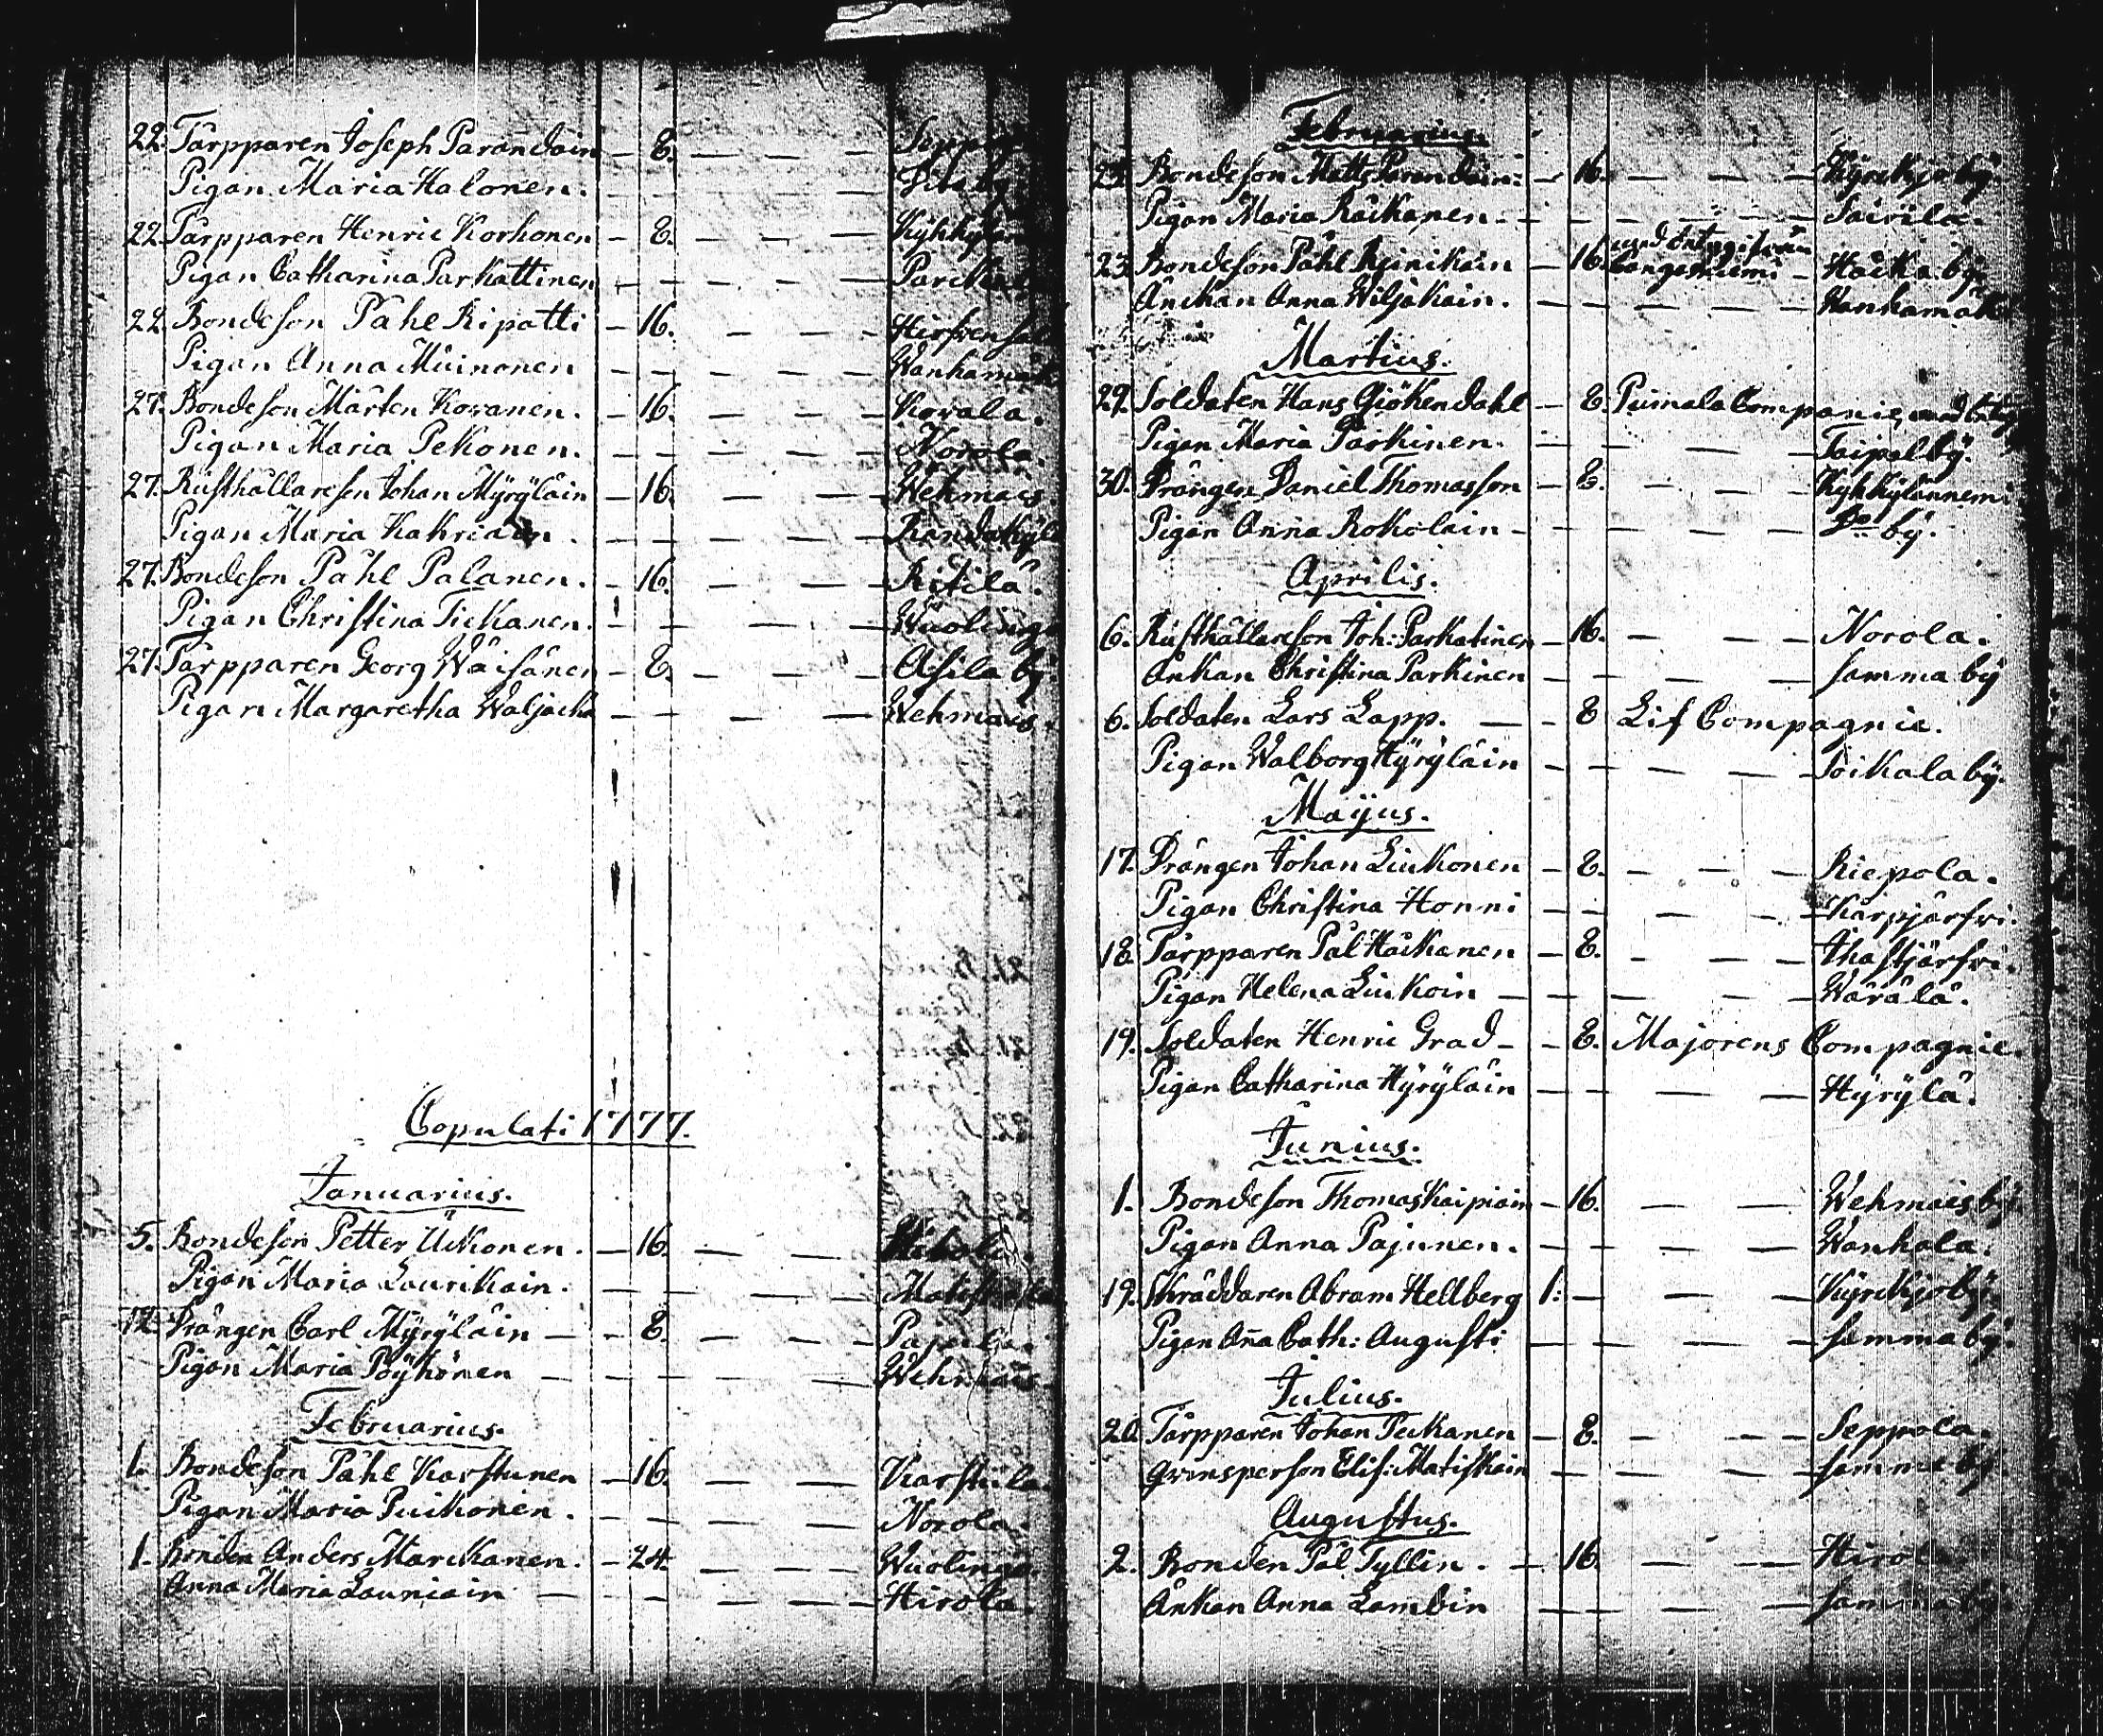 22. Tårpparen Joseph Parandain — 8. — — —
Pigan Maria Halonen. — — — —
22. Tårpparen Henric Korhonen — 8. — — —
Pigan Catharina Parkattinen — — — —
22. Bondeson Påhl Ripatti — 16. — — — Hirfvensal
Pigan Anna Muinonen — — — — Wanhamäk
27. Bondeson Mårten Kovanen. — 16. — — — Kovala.
Pigan Maria Pekonen. — — — — Norola.
27. Rusthållareson Johan Mÿrÿläin — 16. — — — Wehmais.
Pigan Maria Kahriain. — — — — Randakÿlä
27. Bondeson Påhl Palanen. — 16. — — — Ritilä.
Pigan Christina Tickanen. — — — —
27. Tårpparen Georg Wäisänen — 8. — — — Asila bÿ.
Pigan Margaretha Waljacka — — — — Wehmais.
Copulati 1777.
Januarius.
5. Bondeson Petter Uckonen. — 16. — — —
Pigan Maria Laurikain. — — — —
12. Drängen Carl Mÿrÿläin — — 8. — — — Pajula.
Pigan Maria Pöÿhönen — — — — Wehmais
Februarius.
1. Bondeson Påhl Karstunen — 16. — — — Karstila.
Pigan Maria Puikonen. — — — — Norola.
1. Bonden Anders Marckanen. — 24. — — — Wuolinga.
Anna Maria Launiain — — — — Hirola.
Februarius.
23. Bondeson Matts Parandain. — 16. — — — Kÿrckjo bÿ.
Pigan Maria Räikänen — — — — Sairila.
23. Bondeson Påhl Reinikain — 16. Cangasniemi — Häckä bÿ.
Änckan Anna Wiljakain. — — — — Wanhamäk
Martius.
29. Soldaten Hans Giökendahl — 8. Pumala Companie, med
Pigan Maria Parkinen. — — — — Taipal bÿ.
30. Drängen Daniel Thomasson — 8. — — — Kÿhkÿlänniemi
Pigan Anna Rokolain — — — — Do bÿ.
Aprilis.
6. Rusthållareson Joh: Parkatinen — 16. — — — Norola.
Änkan Christina Parkinen — — — — samma bÿ
6. Soldaten Lars Lapp. — — 8 Lif Compagnie.
Pigan Walborg Hÿrÿläin — — — — Soikala bÿ.
Maÿus.
17. Drängen Johan Liukonen — 8. — — — Riepola.
Pigan Christina Honni — — — — Karpjärfvi.
18. Tårpparen Pål Häikänen — 8. — — — Ihastjärfvi.
Pigan Helena Liukoin — — — — Wärälä.
19. Soldaten Henric Grad — — 8. Majorens Compagnie.
Pigan Catharina Hÿrÿläin — — — — Hÿrÿlä.
Junius.
1. Bondeson Thomas Kaipiain — 16. — — — Wehmais bÿ
Pigan Anna Pajunen. — — — — Wanhala.
19. Skräddaren Abram Hellberg 1: — — — Kÿrckjo bÿ.
Pigan Aña Cath: Augusti — — — — samma bÿ.
Julius.
20. Tårpparen Johan Teckanen — 8. — — — Seppola.
Qvinsperson Elis: Matiskain — — — — samma bÿ.
Augustus.
2. Bonden Pål Tyllin. — 16. — — —
Änkan Anna Lambin — — — — samma bÿ.